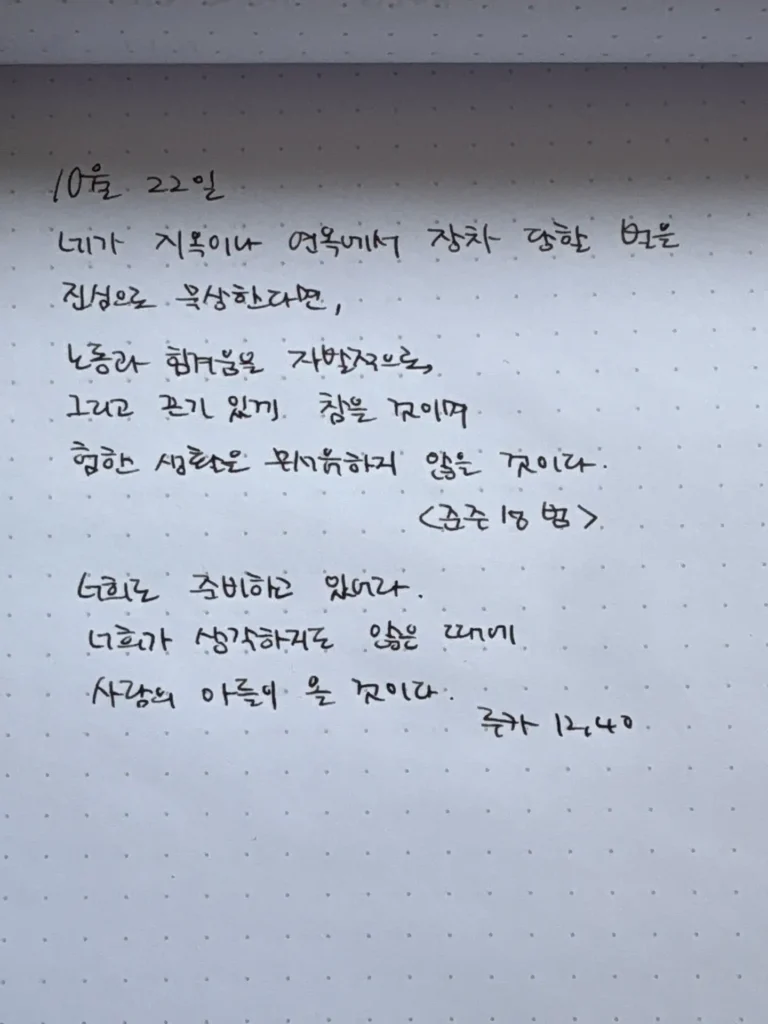 10월 22일
네가 지옥이나 연옥에서 장차 당할 벌을
진심으로 묵상한다면,
노동과 힘겨움을 자발적으로,
그리고 끈기 있게 참을 것이며
험한 생활은 무서워하지 않을 것이다.
<준주 18 범>
너희도 준비하고 있어라.
너희가 생각하지도 않은 때에
사람의 아들이 올 것이다.
루카 12,40